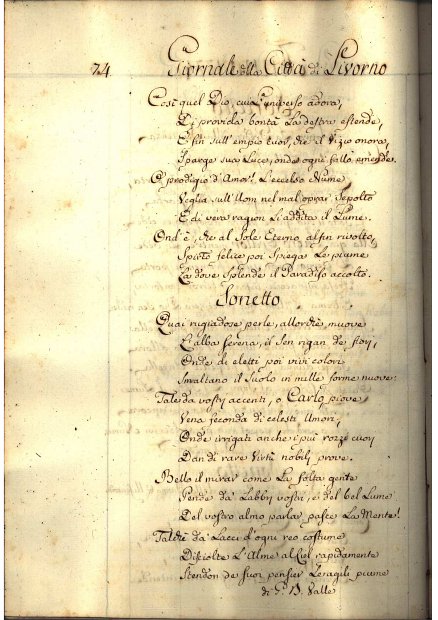 24 Giornale della Città di Livorno
Così quel Dio, cui l'universo adora,
Di provida bontà la destra estende,
E fin sull'empio cuor, che il Vizio onora,
Sparge sua Luce, onde ogni fallo emende.
O prodigio d'Amor! L'eccelso Nume
Veglia sull'Uom nel mal oprar Sepolto
E di vera ragion Li addita il Lume.
Ond'è, che al Sole Eterno alfin rivolto,
Spirto felice poi Spiega Le piume
Là dove Splende il Paradiso accolto.
Sonetto
Quai rugiadose perle, allorchè muove
L'alba serena, il Sen rigan de fiori,
Onde di eletti poi vivi colori
Smaltano il Suolo in mille forme nuove:
Tale da vostri accenti, o Carlo, piove
Vena feconda di celesti Umori,
Onde irrigati anche i più rozzi cuori
Dan di rare Virtù nobili prove.
Bello il mirar come La folta gente
Pende da Labbri vostri, e del bel Lume
Del vostro almo parlar pasce La Mente!
Talchè da Lacci d'ogni reo costume
Disciolte L'Alme al Ciel rapidamente
Stendon de suoi pensier Le agili piume
di B. Valle